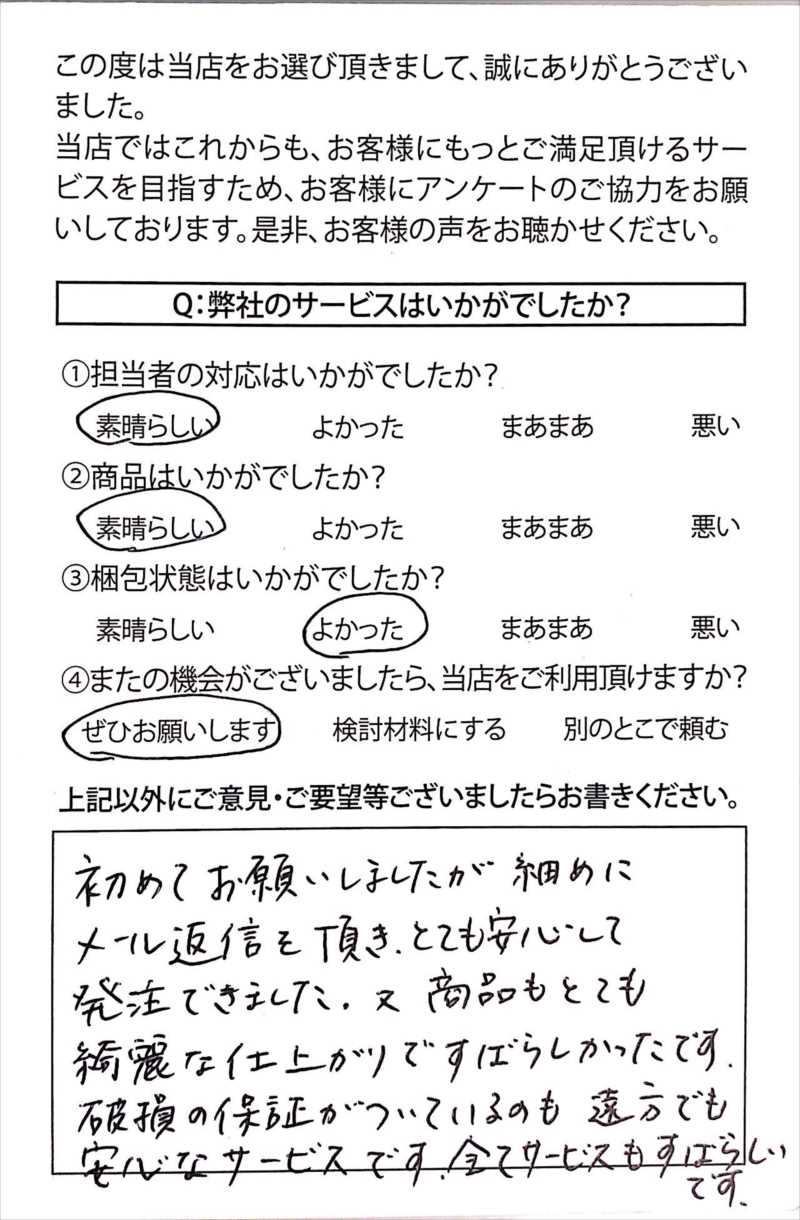 この度は当店をお選び頂きまして、誠にありがとうござい
ました。
当店ではこれからも、お客様にもっとご満足頂けるサー
ビスを目指すため、お客様にアンケートのご協力をお願
いしております。是非、お客様の声をお聴かせください。
Q：弊社のサービスはいかがでしたか？
①担当者の対応はいかがでしたか？
素晴らしい よかった まあまあ 悪い
②商品はいかがでしたか？
素晴らしい よかった まあまあ 悪い
③梱包状態はいかがでしたか？
素晴らしい よかった まあまあ 悪い
④またの機会がございましたら、当店をご利用頂けますか？
ぜひお願いします 検討材料にする 別のとこで頼む
上記以外にご意見・ご要望等ございましたらお書きください。
初めてお願いしましたが 細めに
メール返信を頂き、とても安心して
発注できました。又 商品もとても
綺麗な仕上がりですばらしかったです。
破損の保証がついているのも 遠方でも
安心なサービスです。全てサービスもすばらしい
です。